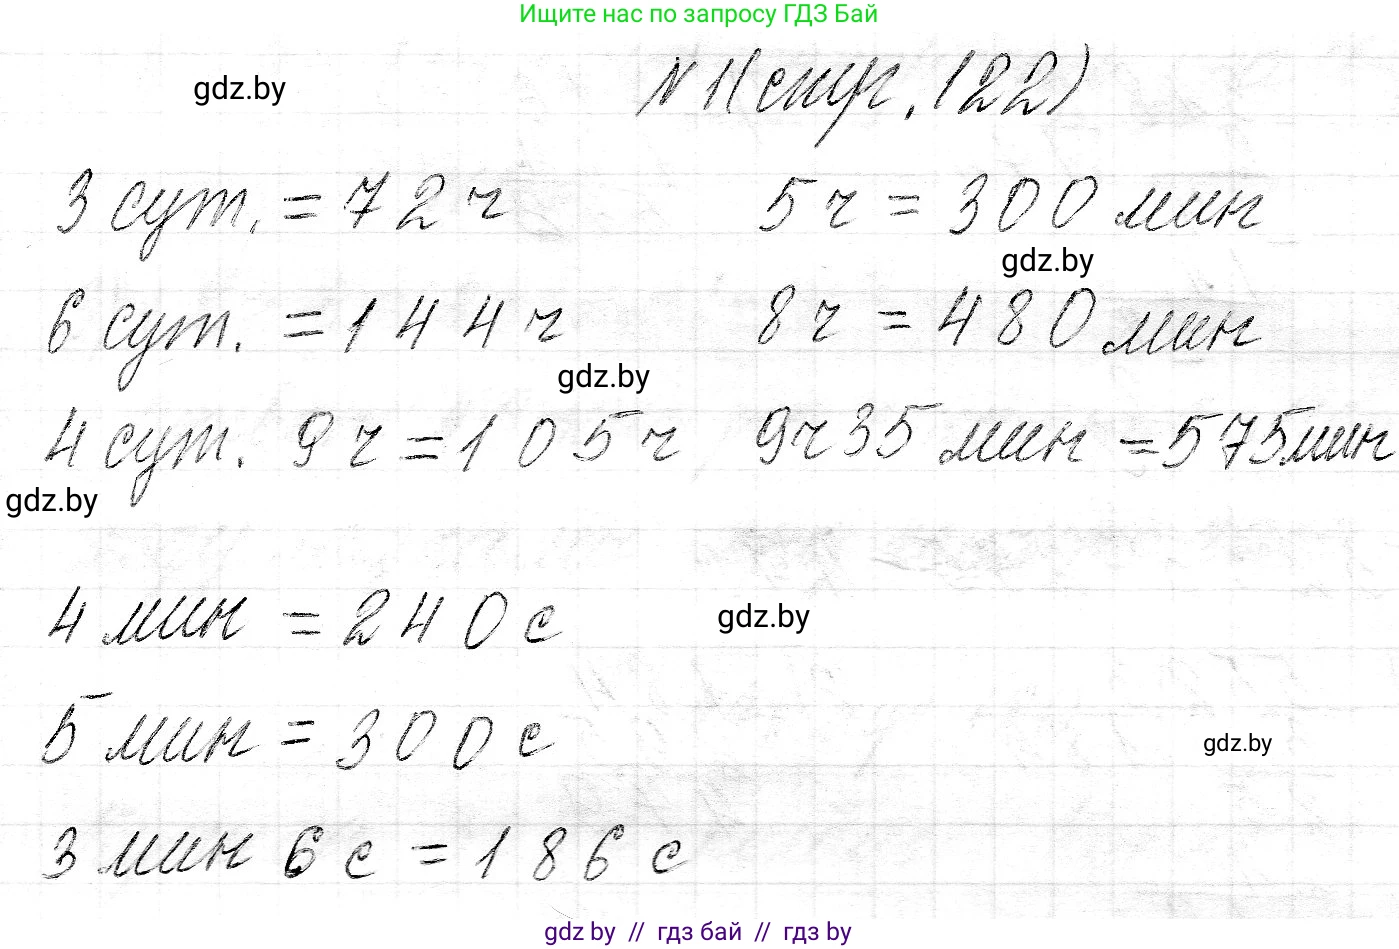 Ищите нас по запросу ГДЗ Бай
gdz.by
№ 1 (стр. 122)
3 сут. = 72 ч
5 ч = 300 мин
gdz.by
6 сут. = 144 ч
8 ч = 480 мин
gdz.by
4 сут. 9 ч = 105 ч
9 ч 35 мин = 575 мин
gdz.by
4 мин = 240 с
gdz.by
5 мин = 300 с
gdz.by
3 мин 6 с = 186 с
gdz by // гдз бай // гдз by